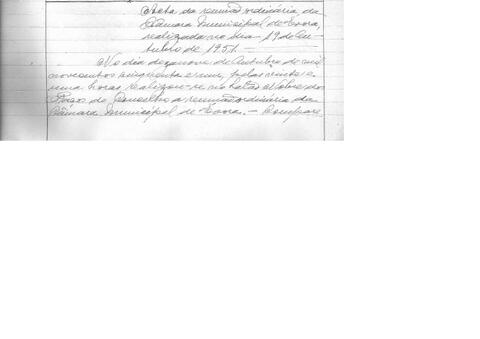 Acta da reunião ordinária da
Câmara Municipal de Evora,
realizada no dia 19 de Ou-
tubro de 1951. —
No dia dezanove de Outubro de mil
novecentos cinquenta e um, pelas vinte e
uma horas realizou-se no Salão Nobre dos
Paços do Concelho a reunião ordinária da
Câmara Municipal de Evora. — Compare